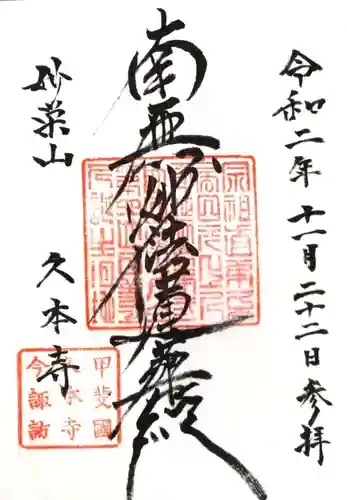 令和二年十一月二十二日参拝
南無妙法蓮華経
妙栄山
久本寺
甲斐国
久本寺
今諏訪